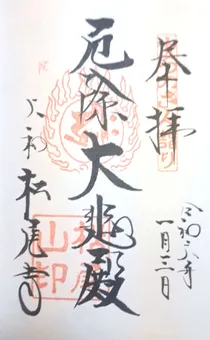 奉拝
令和六年
一月三日
厄除大悲殿
大和
松尾寺
松尾山印